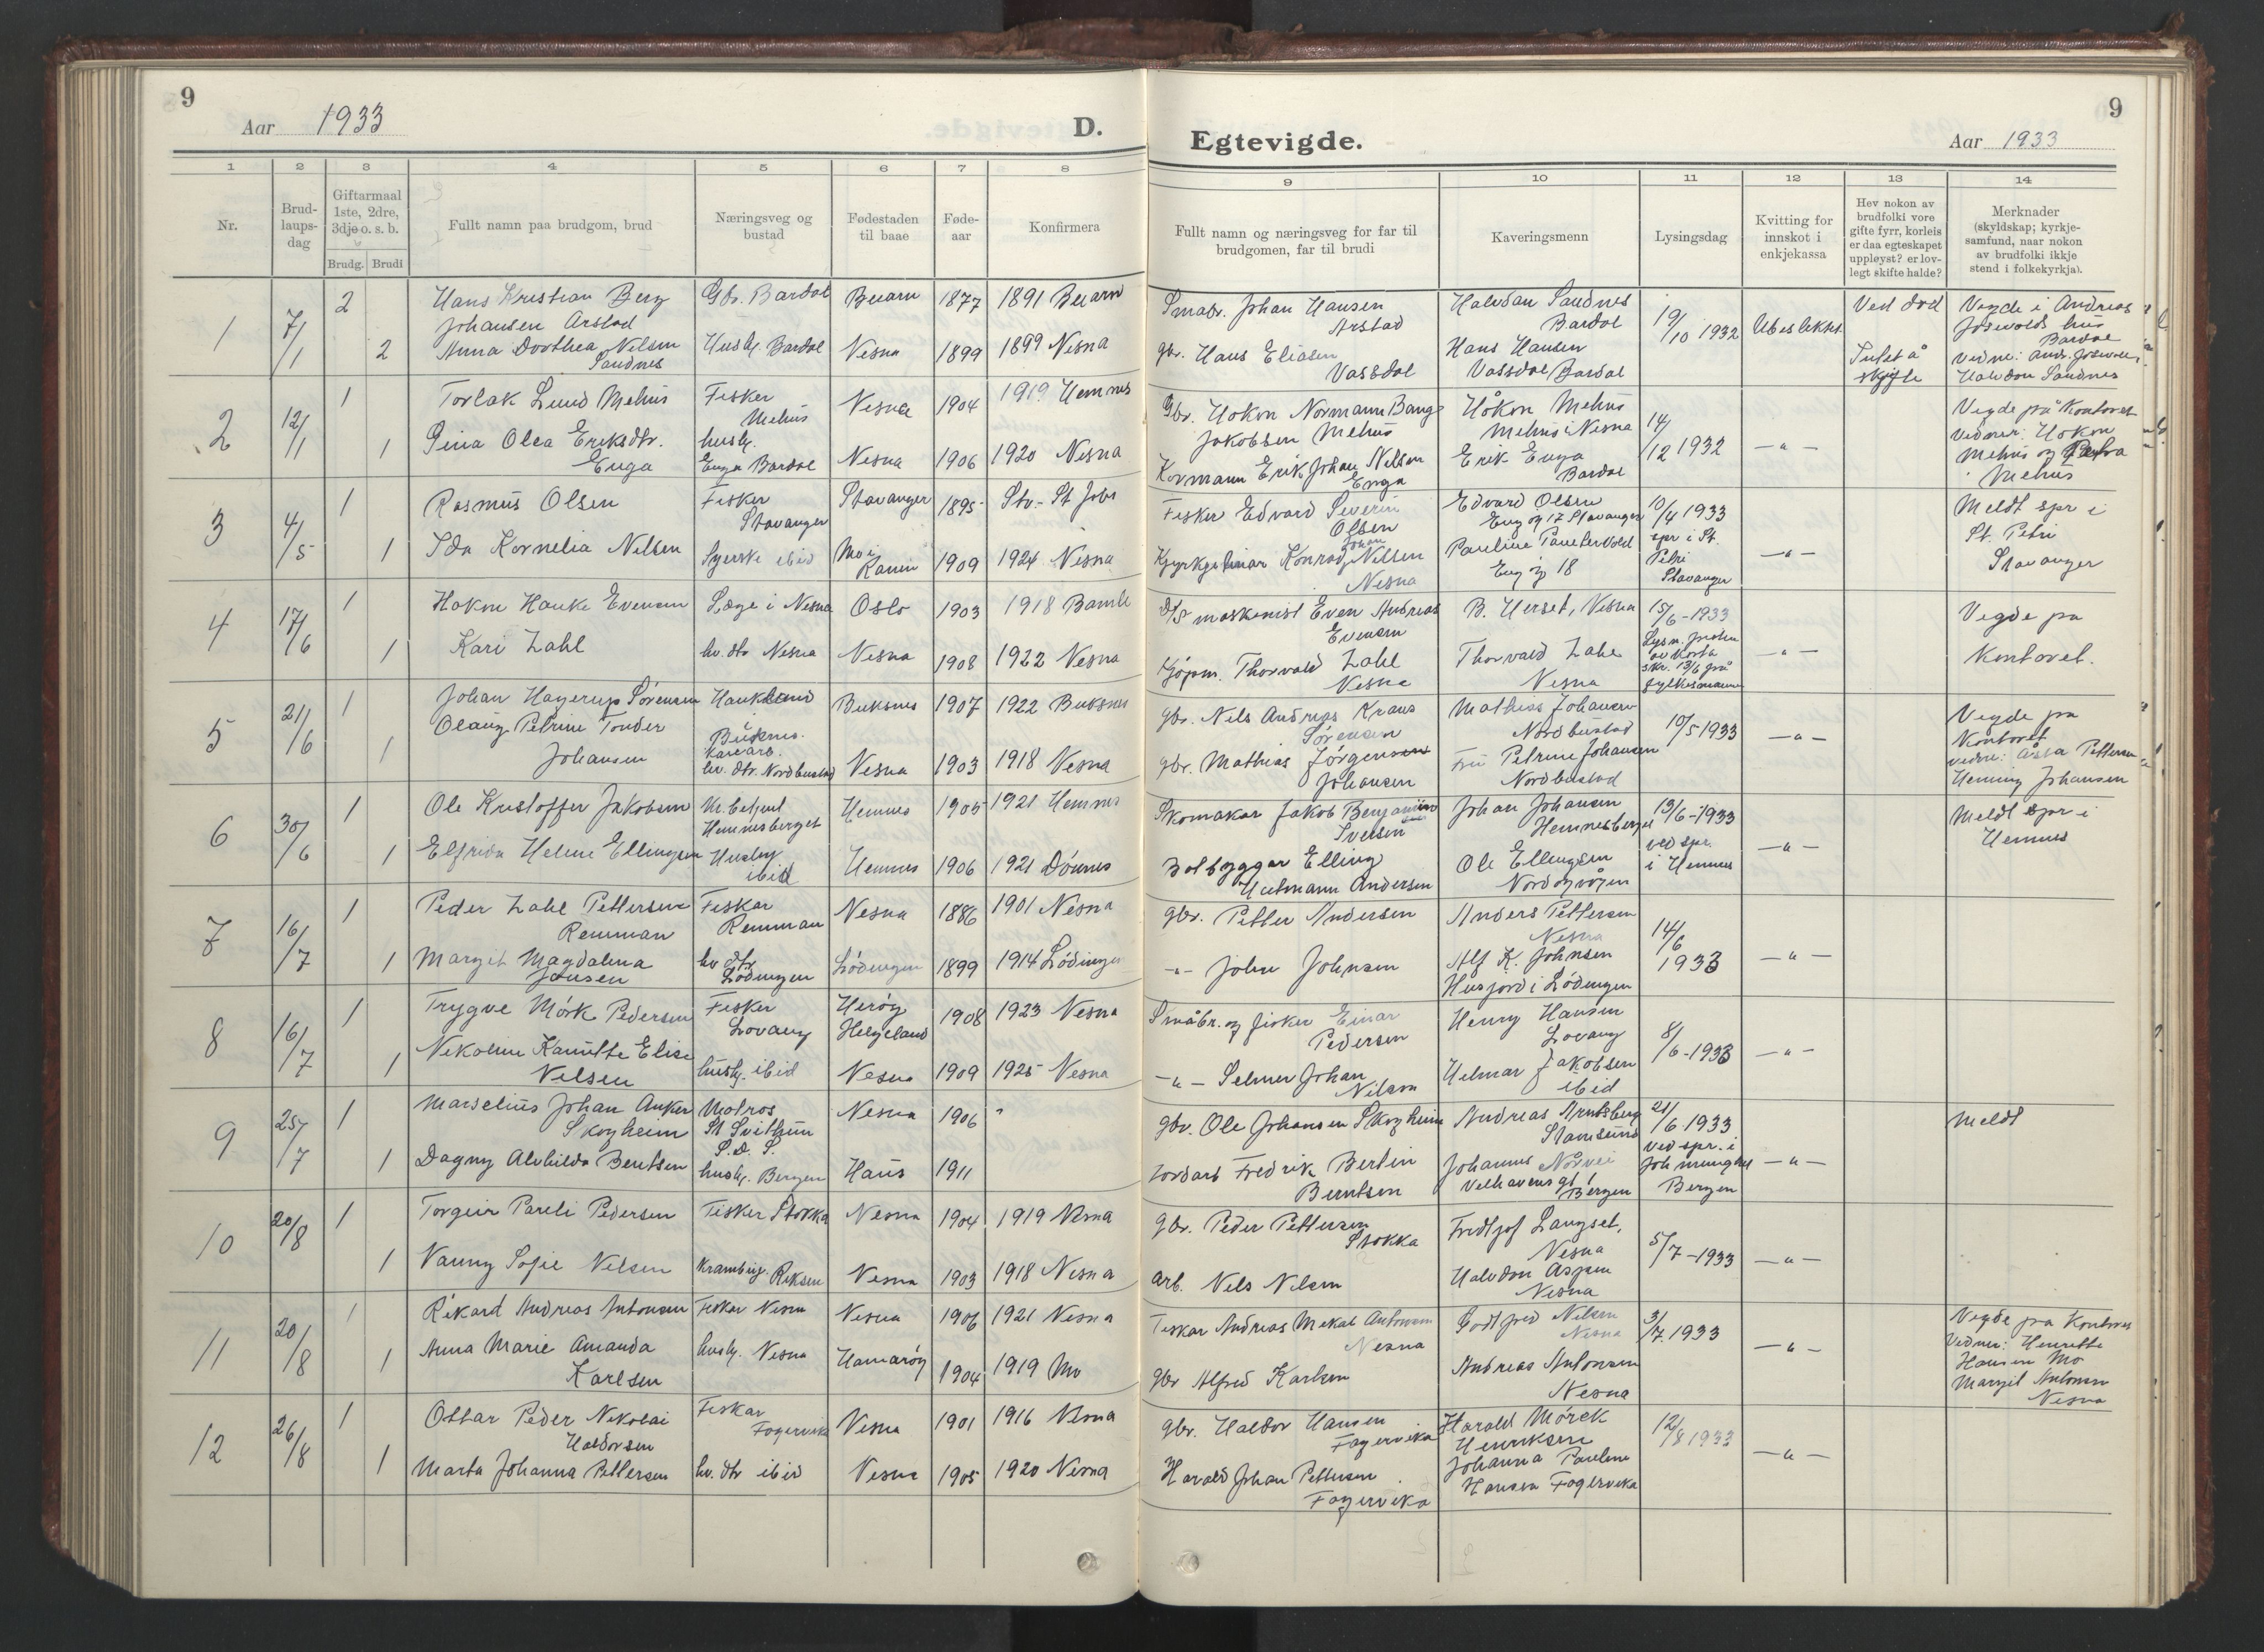 9
Aar 1933
D.
1 2 3 4 5 6 7 8
Nr.
Brud-
laups-
dag
Giftarmaal
1ste, 2dre,
3dje o. s. b.
Brudg. Brudi
Fullt namn paa brudgom, brud
Næringsveg og
bustad
Fødestaden
til baae
Føde-
aar
Konfirmera
1 7/1 2 Hans Kristian Berg Gbr. Bardal Beiarn 1877 1891 Beiarn
Johansen Arstad
2 Anna Dorthea Nilsen Husly. Bardal Nesna 1899 1899 Nesna
Sandnes
2 12/1 1 Torlak Lund Mehus Fisker Nesna 1904 1919 Hemnes
Mehus
1 Gina Olea Eriksdtr. husly. Nesna 1906 1920 Nesna
Enga Enga Bardal
3 4/5 1 Rasmus Olsen Fisker Stavanger 1895 Stv. - St Joh
Stavanger
1 Ida Kornelia Nilsen Syerske ibid Mo i 1909 1924 Nesna
Ranen
4 17/6 1 Hakon Hauke Evensen Læge i Nesna Oslo 1903 1918 Bamle
1 Kari Zahl hv. dtr Nesna Nesna 1908 1922 Nesna
5 21/6 1 Johan Hagerup Sørensen Haukland Buksnes 1907 1922 Buksnes
Buksnes.
1 Olaug Petrine Tonder
Johansen hv. dtr. Nordbustad Nesna 1903 1918 Nesna
6 30/6 1 Ole Kristoffer Jakobsen Hemnes 1905 1921 Hemnes
Hemnesberget
1 Elfrida Helene Ellingsen Husly. Hemnes 1906 1921 Dønnes
ibid
7 16/7 1 Peder Zahl Pettersen Fiskar Nesna 1886 1901 Nesna
Remman Remman
1 Margit Magdalena hv dtr Lødingen 1899 1914 Lødingen
Jensen Lødingen
8 16/7 1 Trygve Mørk Pedersen Fisker Herøy 1908 1923 Nesna
Lovang Helgeland
1 Nekoline Kamitte Elise husly. ibid Nesna 1909 1925 Nesna
Nilsen
9 25/7 1 Marselius Johan Anker Matros Nesna 1906 "
Skogheim St Svithun
S. D. S.
1 Dagny Alvhilda Bentsen husly. Bergen Haus 1911
10 20/8 1 Torgeir Pareli Pedersen Fisker Stokka Nesna 1904 1919 Nesna
1 Nanny Sofie Nilsen Nesna 1903 1918 Nesna
11 20/8 1 Rikard Andreas Antonsen Fisker Nesna Nesna 1906 1921 Nesna
1 Anna Marie Amanda husly. Nesna Hamarøy 1904 1919 Mo
Karlsen
12 26/8 1 Ottar Peder Nikolai Fiskar Nesna 1901 1916 Nesna
Haldorsen Fagervika
1 Marta Johanna Pettersen hv. dtr ibid Nesna 1905 1920 Nesna
9
Egtevigde.
Aar 1933
9 10 11 12 13 14
Fullt namn og næringsveg for far til
brudgomen, far til brudi
Kaveringsmenn
Lysingsdag
Kvitting for
innskot i
enkjekassa
Hev nokon av
brudfolki vore
gifte fyrr, korleis
er daa egteskapet
uppløyst? er lov-
legt skifte halde?
Merknader
(skyldskap; kyrkje-
samfund, naar nokon
av brudfolki ikkje
stend i folkekyrkja).
Smabr. Johan Hansen Halvdan Sandnes 19/10 1932 Ubeslektet Ved død Vegde i Andreas
Arstad Bardal Jøsevolds hus
Bardal
Gbr. Hans Eliasen Hans Hansen skifte Vedne: Andr. Jøsevold,
Vassdal Vassdal Bardal Halvdan Sandnes
Gbr. Hokon Normann Bang Håkon Mehus 14/12 1932 — " — Vegde på Kontoret
Jakobsen Mehus Mehus i Nesna Vedner: Hokon
Kormann Erik Johan Nilsen Erik Enga Mehus og Petra
Enga Bardal Mehus
Fisker Edvard Severin Edvard Olsen 10/4 1933 Meldt spr i
Olsen Eng og 17 Stavanger spr i St. St. Petri
Johan Petri — " — Stavanger
Kyrkjetenar Konrad Nilsen Pauline Stavanger
Nesna Eng og 18
D/S maskinist Even Andreas B. Herset, Nesna 15/6 - 1933 Vegde pa
Evensen — " — Kontoret.
Kjøpm. Thorvald Zahl Thorvald Zahl skr. 13/6 frå
Nesna Nesna fylkesmannen
gbr. Nils Andreas Kraus Mathias Johansen 10/5 1933 — " — Vegde pa
Sørensen Nordbustad Kontoret
gbr. Mathias Jørgensen Fru Petrine Johansen Vedne: Åsta Pettersen
Johansen Nordbustad Henning Johansen
Skomakar Jakob Benjamin Johan Johansen 13/6 - 1933 — " — Meldt spr i
Iversen Hemnesberget ved spr. Hemnes
Bolbyggar Elling Ole Ellingsen i Hemnes
Hutmann Andersen Nordøyvågen
gbr. Petter Andersen Anders Pettersen 14/6 1933 — " —
Nesna
-"- John Johnsen Alf K. Johnsen
Husjord i Lødingen
Småbr. og fisker Einar Henry Hansen 8/6 - 1933 — " —
Pedersen Lovang
-"- Selmer Johan Helmar Jakobsen
Nilsen ibid
gbr. Ole Johansen Skogheim Andreas Arntsberg 21/6 1933 — " — Meldt
Stamsund ved spr. i
Fredrik Bertin Johannes
Berntsen Velhavens gt Bergen Bergen
gbr. Peder Pettersen Fredtjof Langset, 5/7 - 1933 — " —
Stokka Nesna
arb. Nils Nilsen Halvdan Aspen
Nesna
Fiskar Andreas Mekal Antonsen Godtfred Nilsen 3/7 1933 — " — Vegde pa Kontoret
Nesna Nesna Vedner: Henrette
gbr Alfred Karlsen Andreas Antonsen Hansen Mo
Nesna Margit Antonsen
Nesna
gbr. Haldor Hansen Harald Mörck 12/8 1933 — " —
Fagervika Henriksen
Harald Johan Pettersen Johanna Pauline
Fagervika Hansen Fagervika